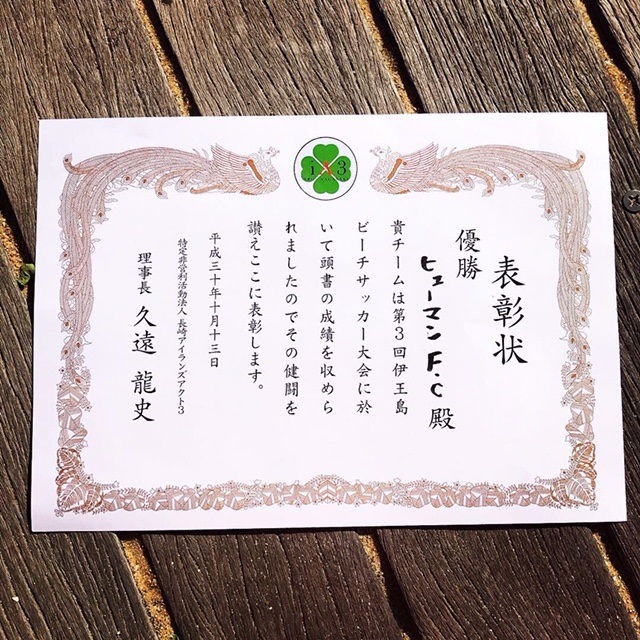 i 3
表彰状
優勝
ヒューマンF.C 殿
貴チームは第3回伊王島
ビーチサッカー大会に於
いて頭書の成績を収めら
れましたのでその健闘を
讃えここに表彰します。
平成三十年十月十三日
特定非営利活動法人 長崎アイランズアクト3
理事長 久遠 龍史